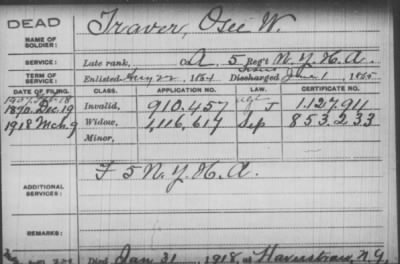 DEAD
NAME OF SOLDIER: Traver, Osee W.
SERVICE: Late rank, Co. A, 5 Reg't N.Y.H.A.
TERM OF SERVICE: Enlisted 22, 1864 Discharged June 1, 1865
DATE OF FILING. CLASS. APPLICATION NO. LAW. CERTIFICATE NO.
1890 Dec. 19 Invalid, 910.457 J 1.127.911
1918 Mch. 9 Widow, 1,116,617 Sep 853.233
Minor,
ADDITIONAL SERVICES: F 5 N.Y.H.A.
REMARKS:
Died Jan 31, 1918, at Haverstraw, N.Y.